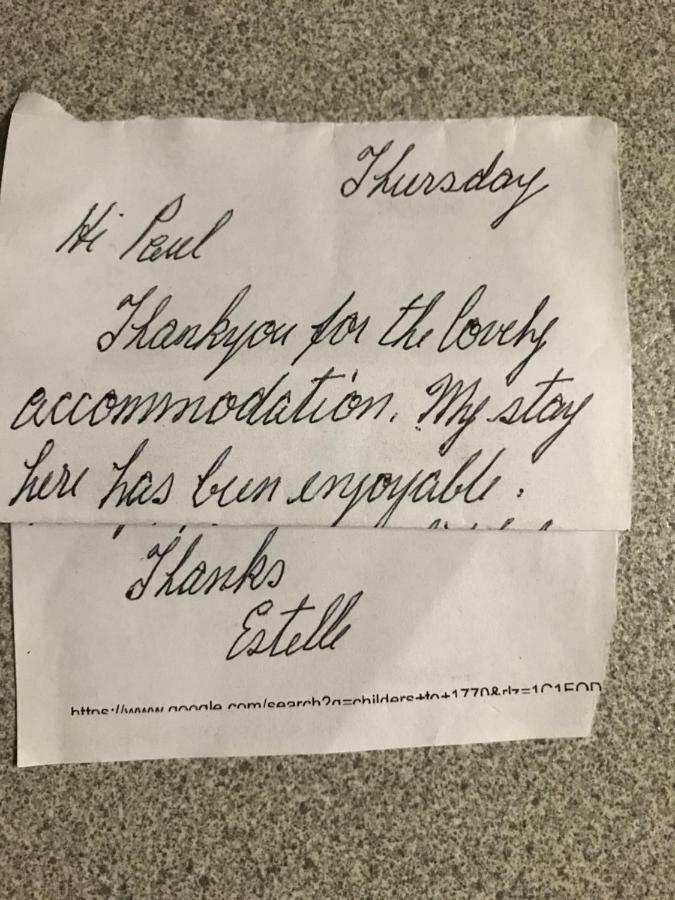 Thursday
Hi Paul
Thankyou for the lovely
accommodation. My stay
here has been enjoyable.
Thanks
Estelle
https://www.google.com/search?q=childers+to+1770&rlz=1C1EOD